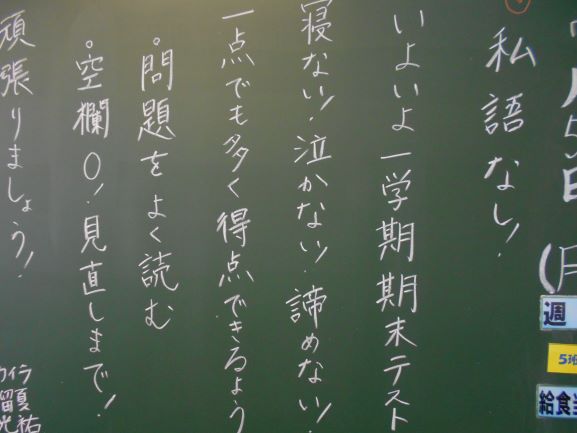 5日(月
私語なし!
いよいよ一学期期末テスト
寝ない!泣かない!諦めない!
一点でも多く得点できるよう
・問題をよく読む
・空欄0!見直しまで!
頑張りましょう!
週
5班
給食